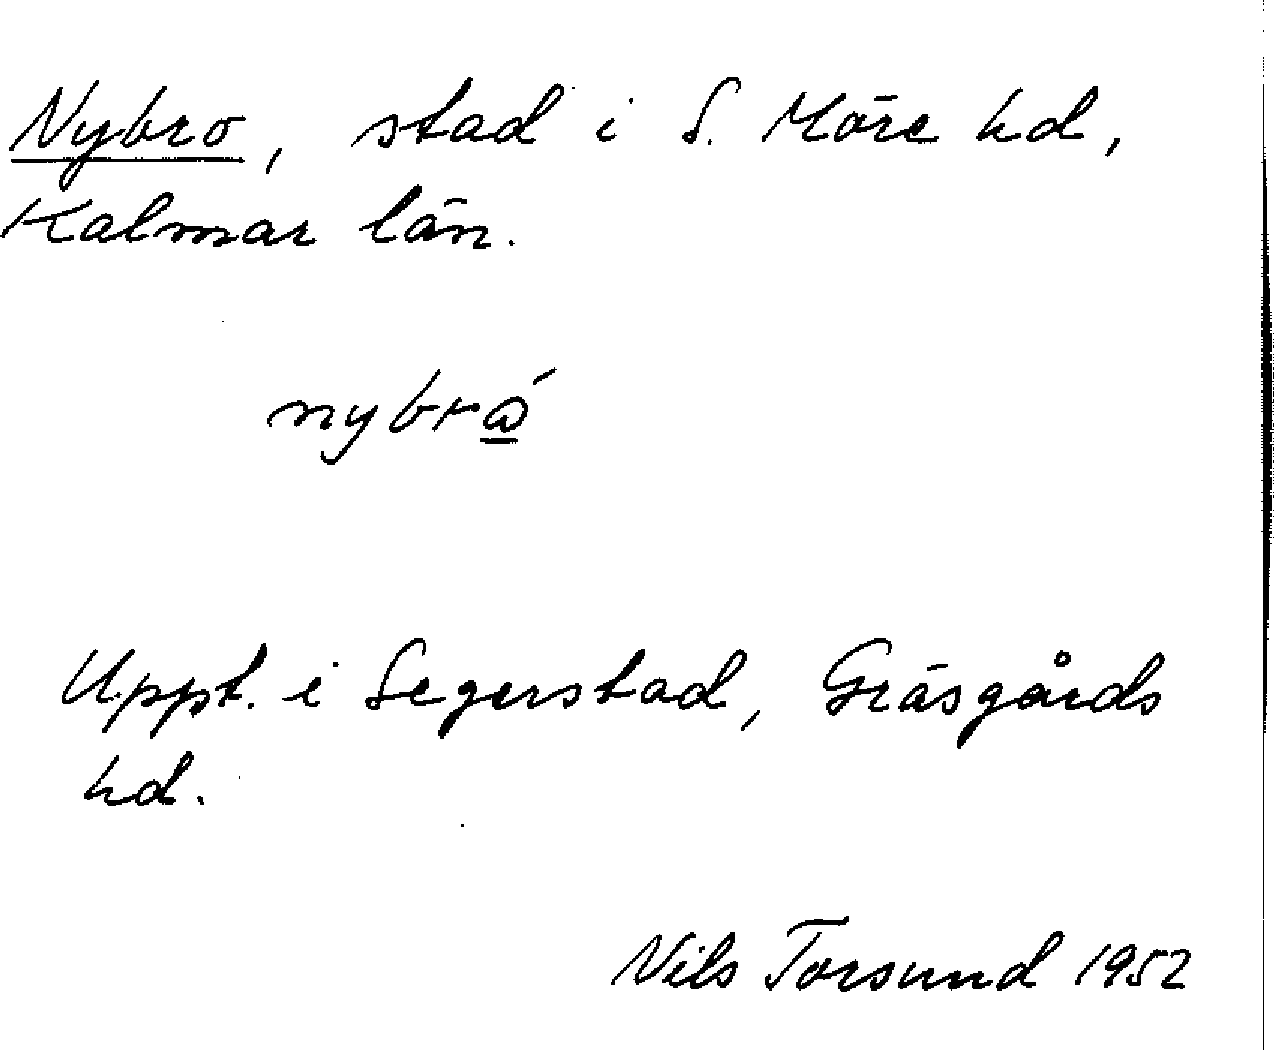 Nybro, stad i S. Möre hd,
Kalmar län.
Uppt. i Segerstad, Gräsgårds
hd.
Nils Torsund 1952